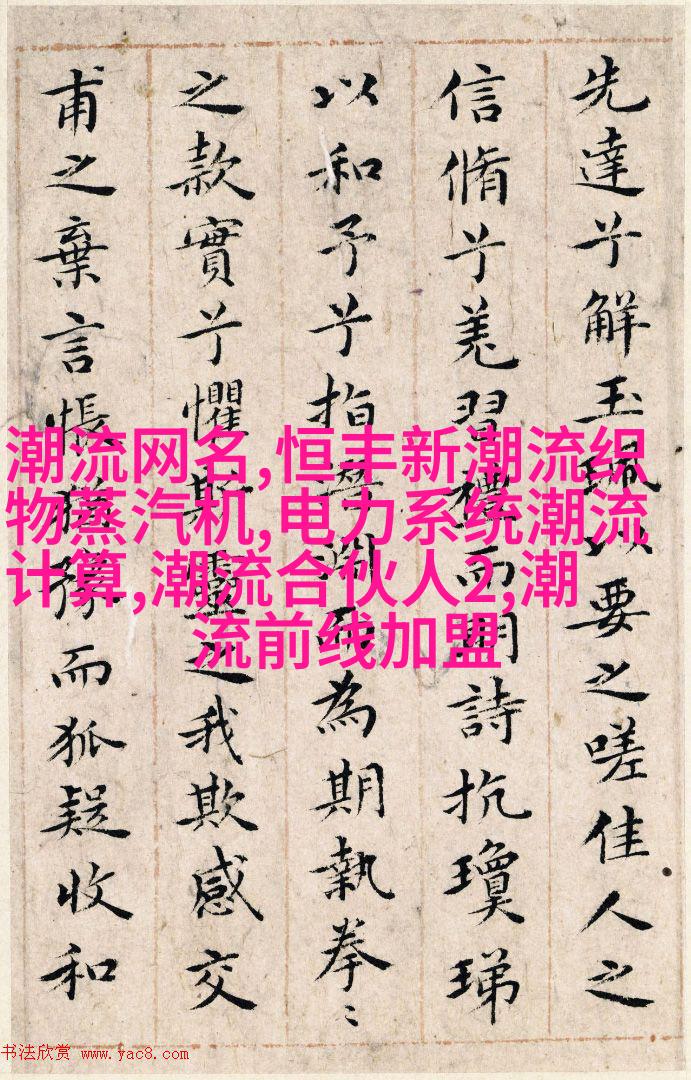 先達兮解玉珮以要之嗟佳人之
信脩兮羌習禮而明詩抗瓊珶
以和予兮指潛淵而為期執拳〻
之款實兮懼斯靈之我欺感交
甫之棄言悵猶豫而狐疑收和
潮流网名,恒丰新潮流织
物蒸汽机,电力系统潮流
计算,潮流合伙人2,潮
流前线加盟
书法欣赏 www.yac8.com